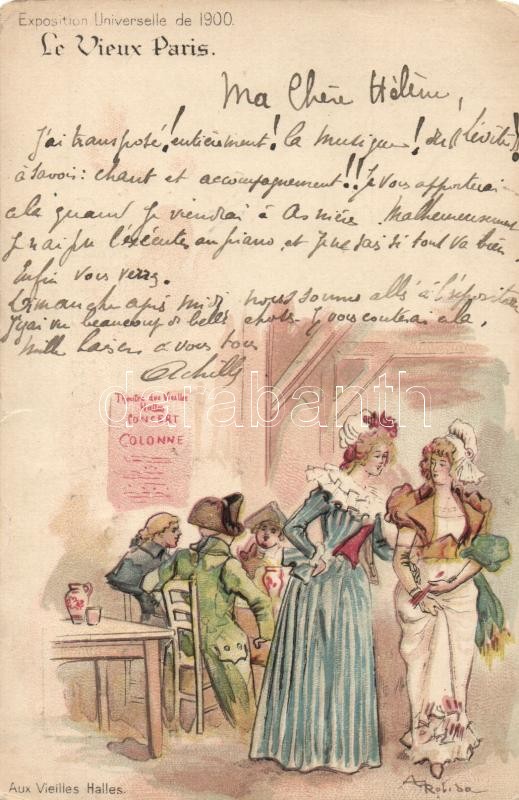 Exposition Universelle de 1900.
Le Vieux Paris.
Ma Chère Hélène,
J'ai transposé! entièrement! la musique! des
à savoir: chant et accompagnement!! Je vous apporterai
cela quand je viendrai à Asnière Malheureusement
je n'ai pu l'exécuter au piano, et je ne sais si tout va bien
Enfin vous verrez.
Dimanche après midi nous sommes allés à l'exposition
J'y ai vu beaucoup de belles choses. Je vous conterai cela.
Mille baisers à vous tous
Achille
Théatre des Vieilles
Halles
CONCERT
COLONNE
darabanth
Aux Vieilles Halles.
A. Robida